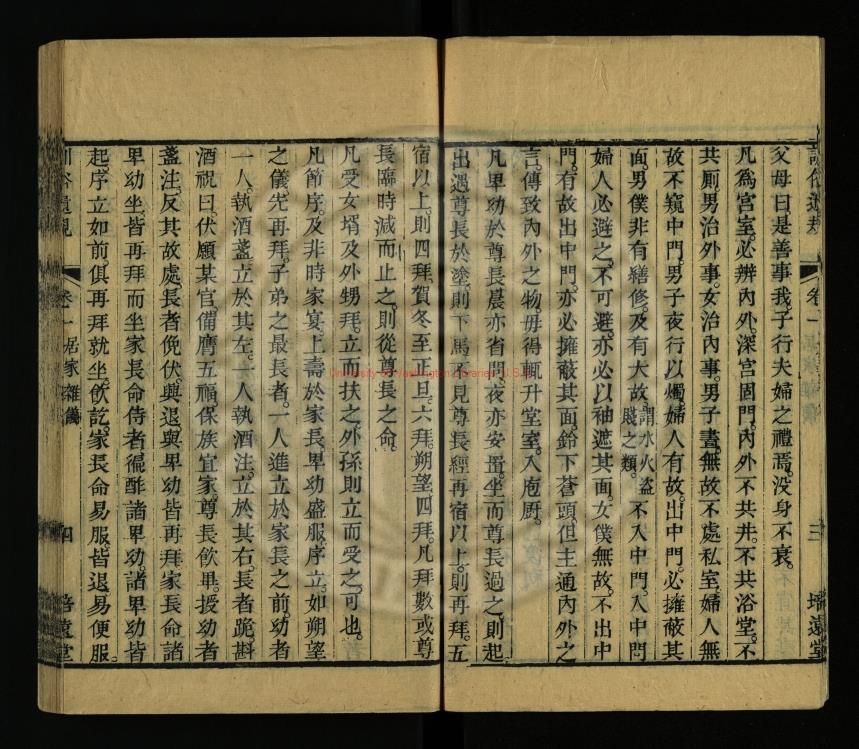 父母曰是善事我子行夫婦之禮焉沒身不衰
凡爲宮室必辨內外深宮固門內外不共井不共浴堂不
共厠男治外事女治內事男子晝無故不處私室婦人無
故不窺中門男子夜行以燭婦人有故出中門必擁蔽其
面男僕非有繕修及有大故謂水火盜賤之類不入中門入中門
婦人必避之不可避亦必以袖遮其面女僕無故不出中
門有故出中門亦必擁蔽其面鈴下蒼頭但主通內外之
言傳致內外之物毋得輒升堂室入庖厨
凡卑幼於尊長晨亦省問夜亦安置坐而尊長過之則起
出遇尊長於塗則下馬不見尊長經再宿以上則再拜五
宿以上則四拜賀冬至正旦六拜朔望四拜凡拜數或尊
長臨時減而止之則從尊長之命
凡受女壻及外甥拜立而扶之外孫則立而受之可也
凡節序及非時家宴上壽於家長卑幼盛服序立如朔望
之儀先再拜子弟之最長者一人進立於家長之前幼者
一人執酒盞立於其左一人執酒注立於其右長者跪斟
酒祝曰伏願某官備膺五福保族宜家尊長飲畢授幼者
盞注反其故處長者俛伏興退與卑幼皆再拜家長命諸
卑幼坐皆再拜而坐家長命侍者徧酢諸卑幼諸卑幼皆
起序立如前俱再拜就坐飲訖家長命易服皆退易便服
卷一 居家雜儀
三
培遠堂
卷一 居家雜儀
四
培遠堂